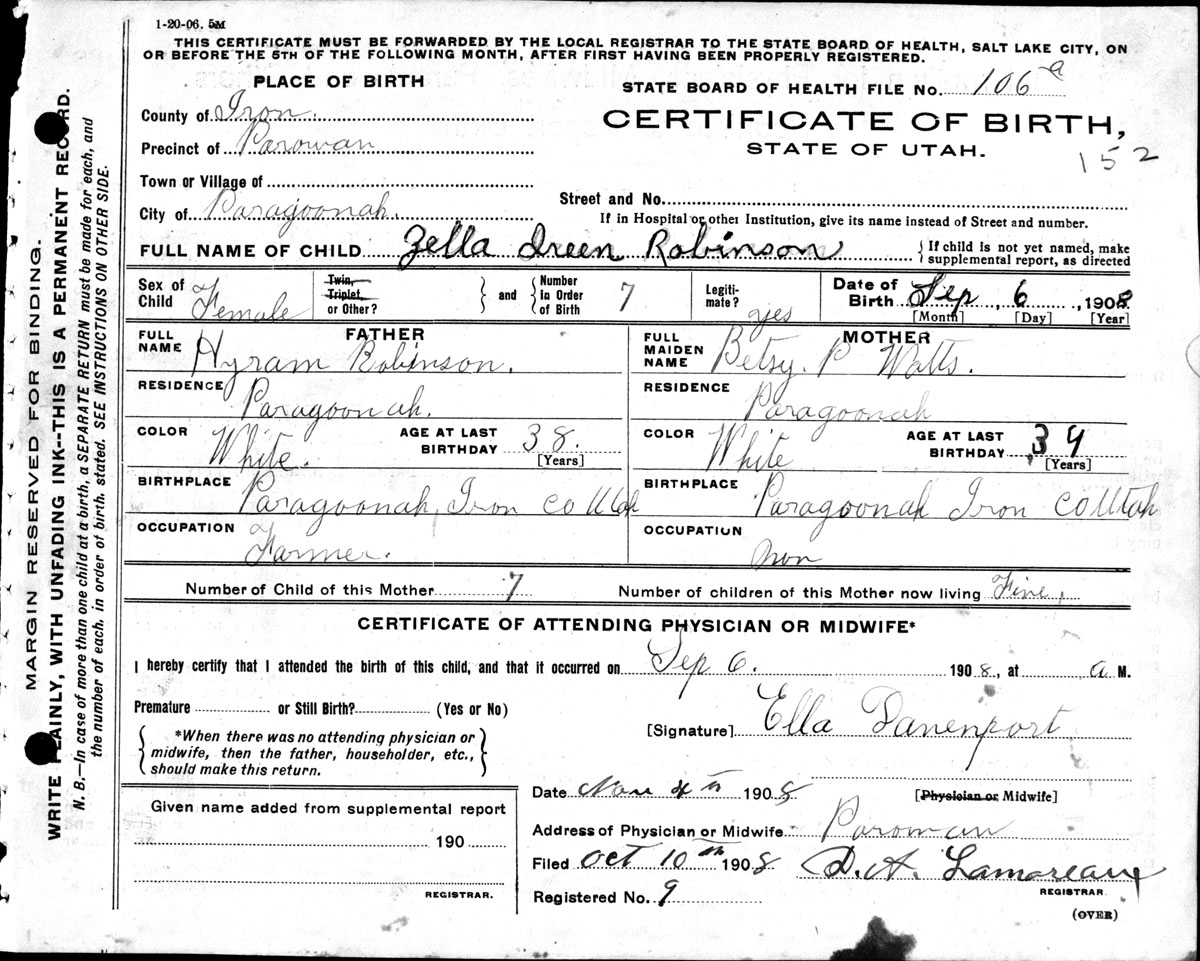 1-20-06. 5M
THIS CERTIFICATE MUST BE FORWARDED BY THE LOCAL REGISTRAR TO THE STATE BOARD OF HEALTH, SALT LAKE CITY, ON
OR BEFORE THE 5TH OF THE FOLLOWING MONTH, AFTER FIRST HAVING BEEN PROPERLY REGISTERED.
PLACE OF BIRTH
STATE BOARD OF HEALTH FILE No. 106 a
County of Iron.
CERTIFICATE OF BIRTH,
Precinct of Parowan
STATE OF UTAH.
152
Town or Village of
Street and No.
City of Paragoonah.
If in Hospital or other Institution, give its name instead of Street and number.
FULL NAME OF CHILD Zella Ireen Robinson
If child is not yet named, make
supplemental report, as directed
Sex of Child Female
Twin, Triplet, or Other?
and Number In Order of Birth 7
Legitimate? yes
Date of Birth Sep, 6, 1908
[Month] [Day] [Year]
FATHER
MOTHER
FULL NAME Hyram Robinson.
FULL MAIDEN NAME Betsy. P Watts.
RESIDENCE Paragoonah.
RESIDENCE Paragoonah
COLOR White. AGE AT LAST BIRTHDAY 38. [Years]
COLOR White AGE AT LAST BIRTHDAY 34 [Years]
BIRTHPLACE Paragoonah, Iron co Utah
BIRTHPLACE Paragoonah Iron co Utah
OCCUPATION Farmer.
OCCUPATION Non
Number of Child of this Mother 7
Number of children of this Mother now living Five,
CERTIFICATE OF ATTENDING PHYSICIAN OR MIDWIFE*
I hereby certify that I attended the birth of this child, and that it occurred on Sep 6. 1908., at a M.
Premature or Still Birth? (Yes or No)
[Signature] Ella Davenport
*When there was no attending physician or
midwife, then the father, householder, etc.,
should make this return.
[Physician or Midwife]
Date Nov 4th 1908
Given name added from supplemental report
190
REGISTRAR.
Address of Physician or Midwife Parowan
Filed Oct 10th 1908 D.A. Lamoreaux
REGISTRAR
Registered No. 9
(OVER)
MARGIN RESERVED FOR BINDING.
WRITE PLAINLY, WITH UNFADING INK--THIS IS A PERMANENT RECORD.
N. B.—In case of more than one child at a birth, a SEPARATE RETURN must be made for each, and
the number of each, in order of birth, stated. SEE INSTRUCTIONS ON OTHER SIDE.